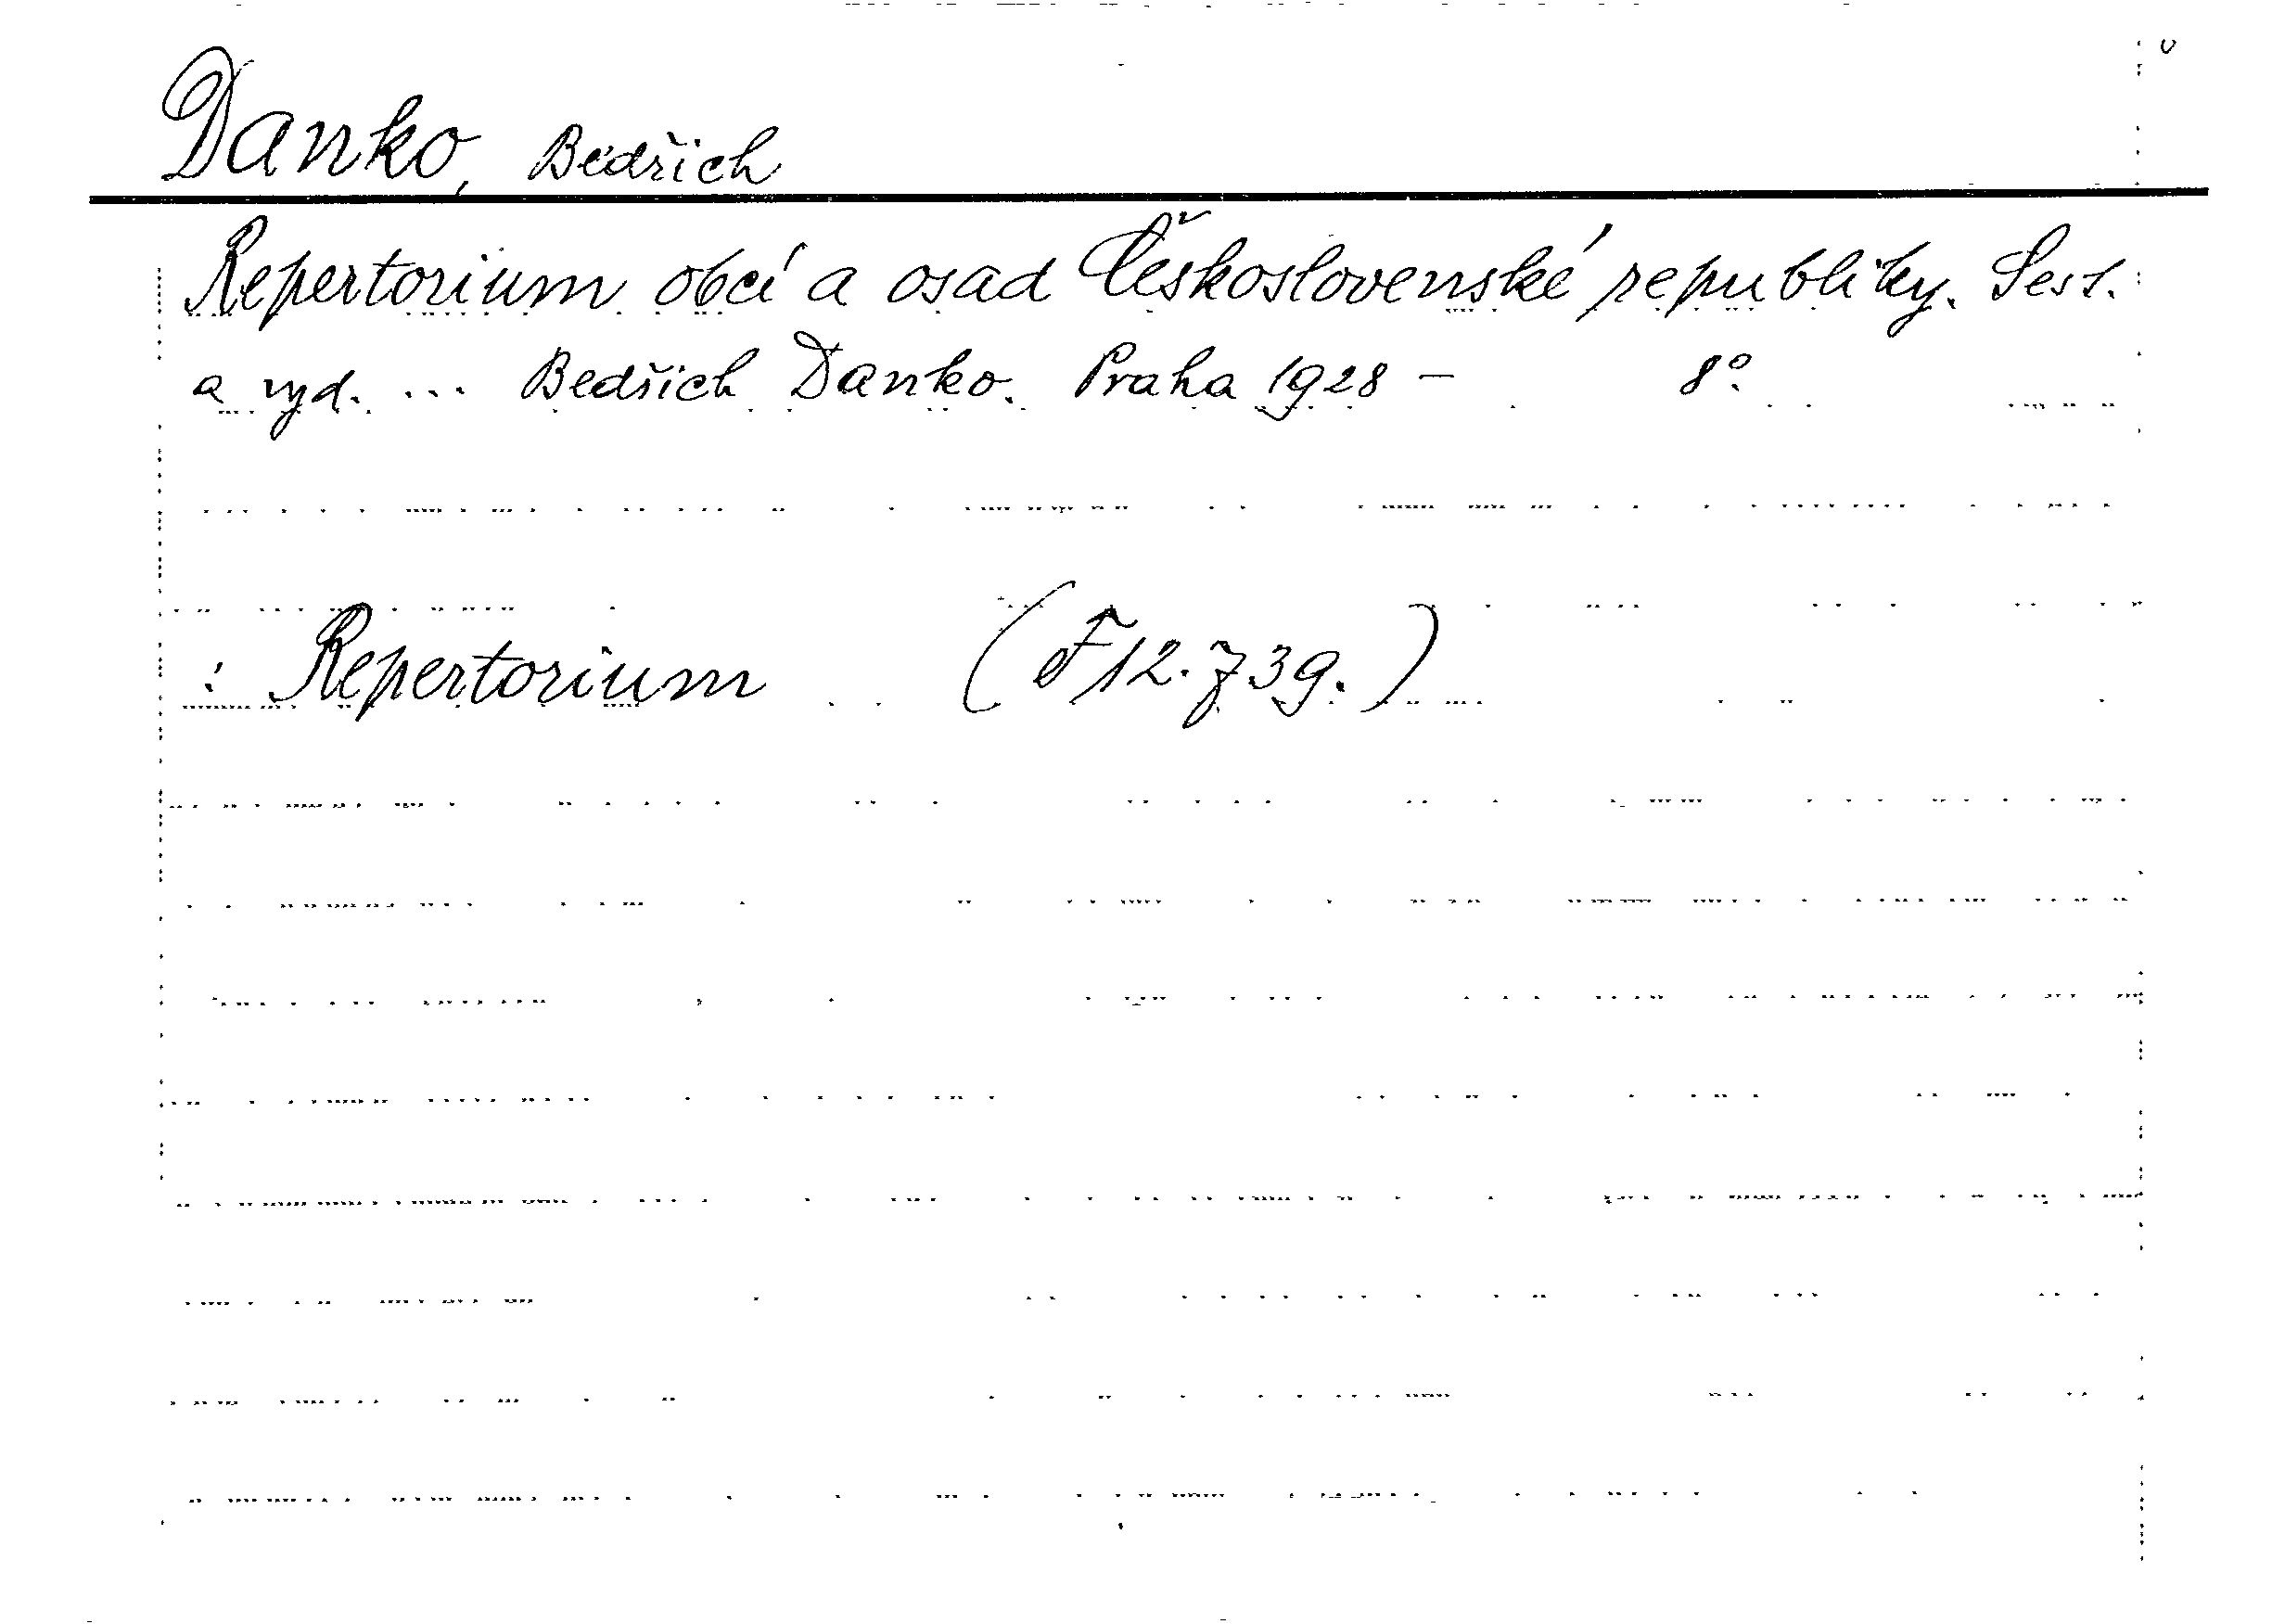 Danko, Bedřich
Repertorium obcí a osad Československé republiky. Sest.
a vyd. ... Bedřich Danko. Praha 1928 - 8°.
: Repertorium (F 12.739.)